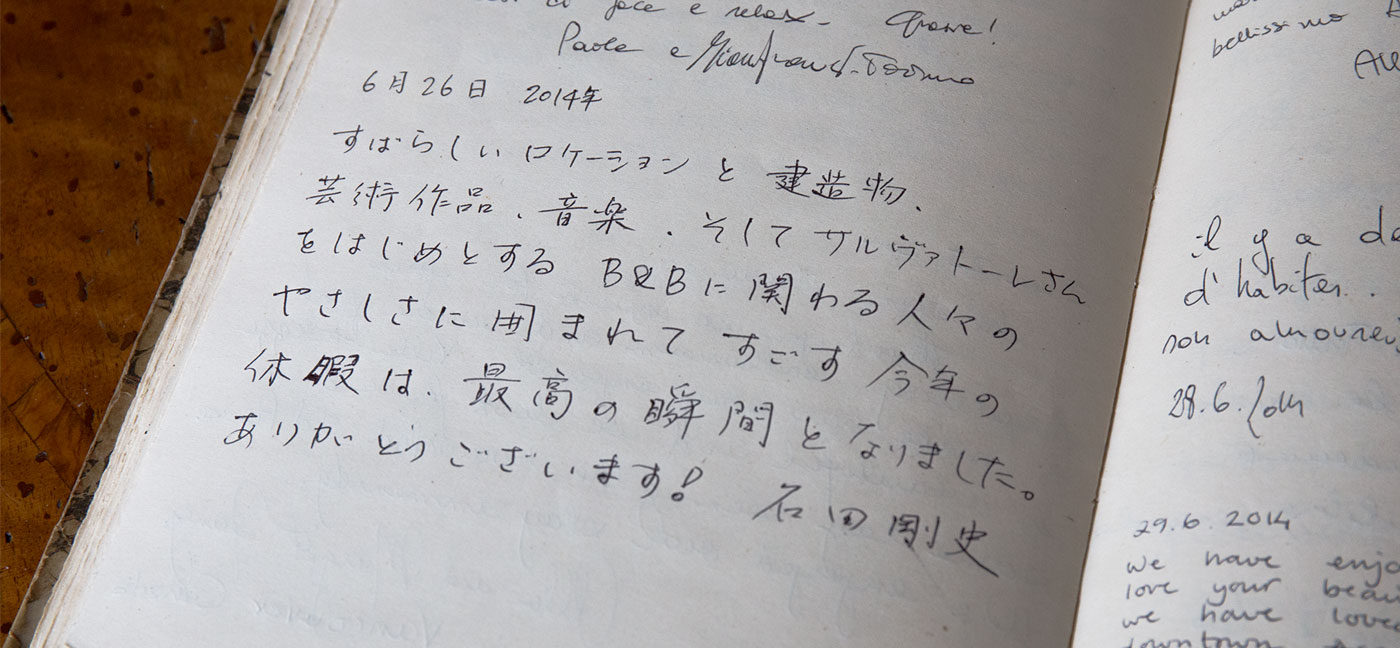 e relax. Grazie!
Paola e
6月26日 2014年
すばらしいロケーションと建造物、
芸術作品、音楽、そしてサルヴァトーレさん
をはじめとする B&Bに関わる人々の
やさしさに囲まれてすごす今年の
休暇は、最高の瞬間となりました。
ありがとうございます! 石田剛史
bellissimo
il y a
d'habiter..
non amoureu
28.6.
29.6.2014
we have enjo
love your beau
we have loved
downtown